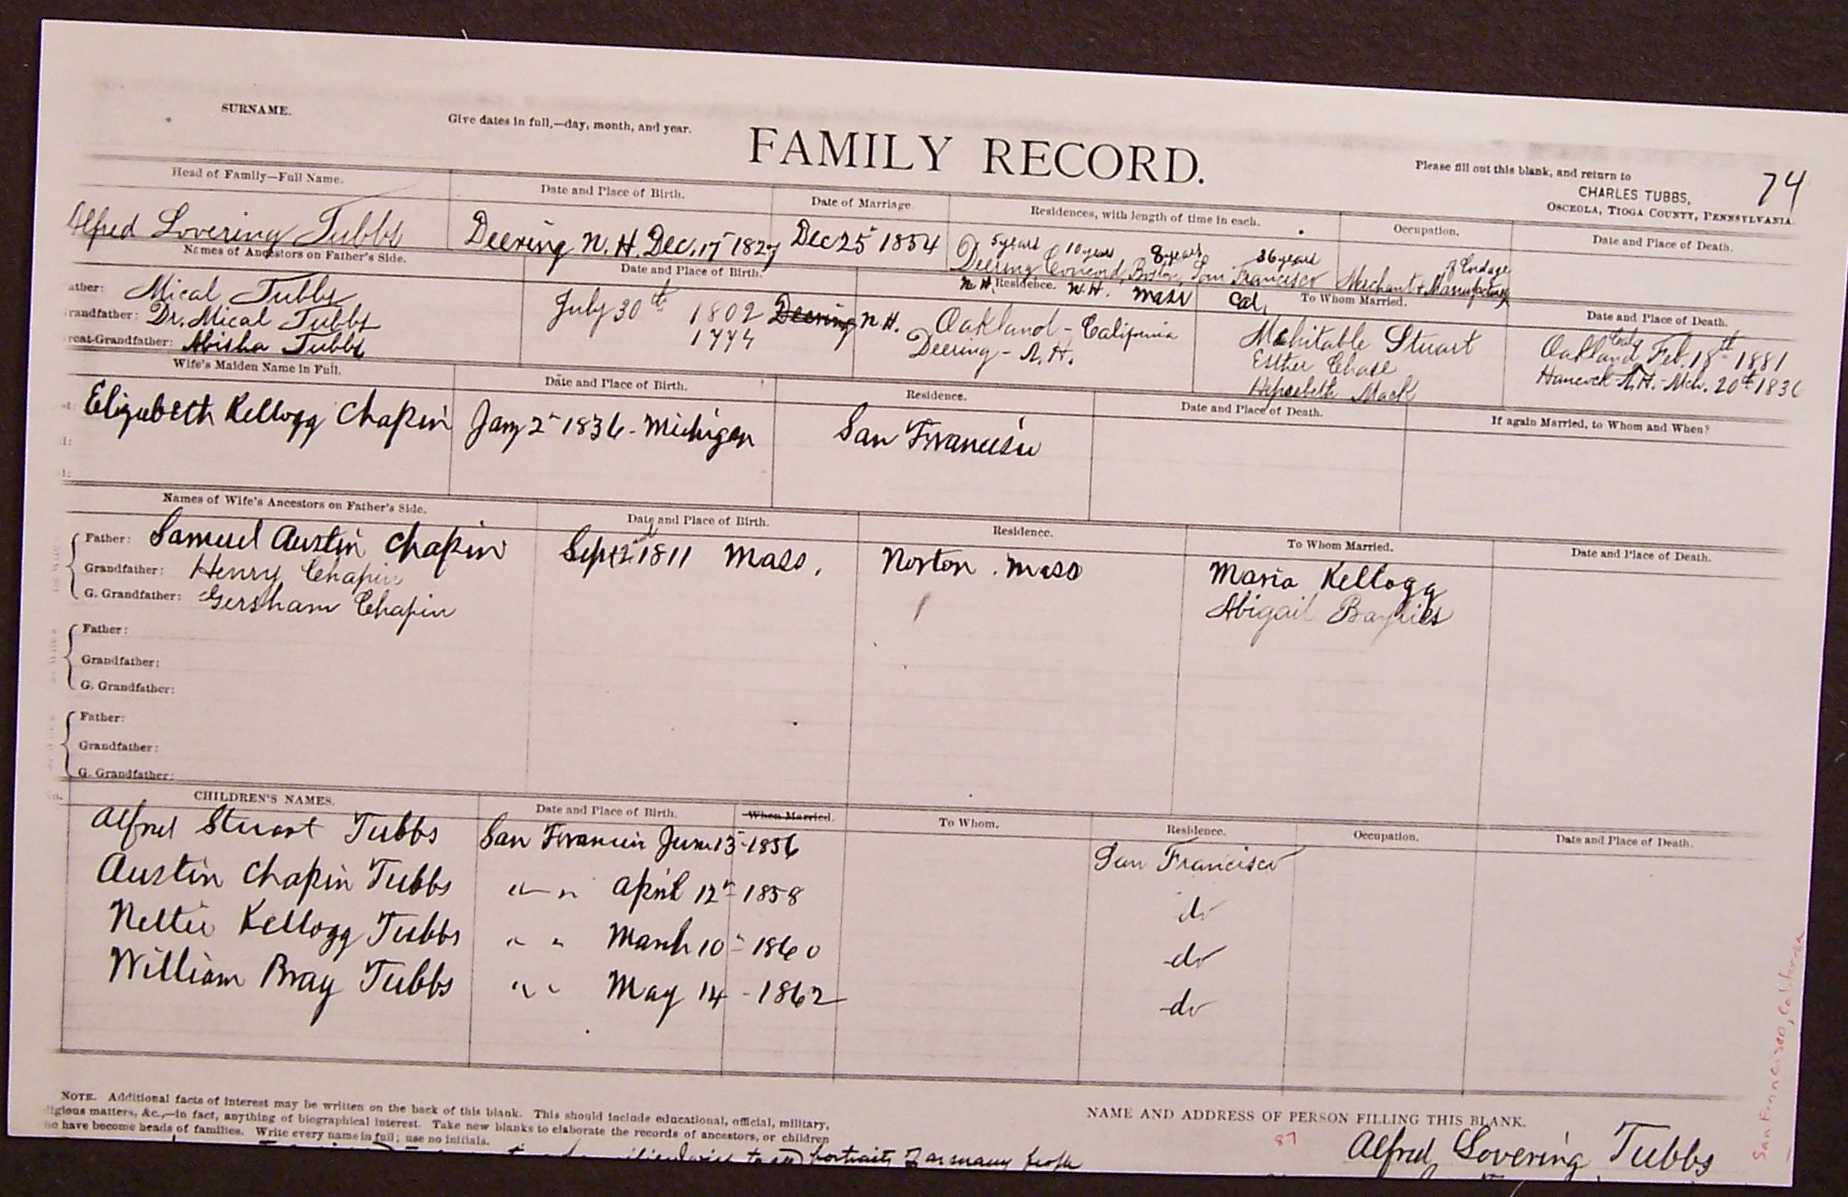 SURNAME.
Give dates in full,—day, month, and year.
FAMILY RECORD.
Please fill out this blank, and return to
CHARLES TUBBS,
OSCEOLA, TIOGA COUNTY, PENNSYLVANIA.
74
Head of Family—Full Name. Date and Place of Birth. Date of Marriage. Residences, with length of time in each. Occupation. Date and Place of Death.
5 years 10 years 8 years 36 years of Cordage
Alfred Lovering Tubbs Deering N.H. Dec. 17 1827 Dec 25 1854 Deering Concord, Boston, San Francisco Merchant & Manufacturer
N.H. N.H. Mass Cal.
Names of Ancestors on Father's Side. Date and Place of Birth. Residence. To Whom Married. Date and Place of Death.
ather: Mical Tubbs July 30th 1802 Deering N.H. Oakland - California Mehitable Stuart Oakland Feb. 18th 1881
randfather: Dr. Mical Tubbs 1774 Deering - N.H. Esther Chase Hancock N.H. - Mch. 20th 1836
reat-Grandfather: Abisha Tubbs Hepsebeth Mack
Wife's Maiden Name in Full. Date and Place of Birth. Residence. Date and Place of Death. If again Married, to Whom and When?
Elizabeth Kellogg Chapin Jany 2 1836 - Michigan San Francisco
Names of Wife's Ancestors on Father's Side. Date and Place of Birth. Residence. To Whom Married. Date and Place of Death.
Father: Samuel Austin Chapin Sept 2nd 1811 Mass. Norton. Mass Maria Kellogg
Grandfather: Henry Chapin Abigail Baylies
G. Grandfather: Gersham Chapin
Father:
Grandfather:
G. Grandfather:
Father:
Grandfather:
G. Grandfather:
CHILDREN'S NAMES. Date and Place of Birth. When Married. To Whom. Residence. Occupation. Date and Place of Death.
Alfred Stuart Tubbs San Francisco June 13 - 1856 San Francisco
Austin Chapin Tubbs " " April 12th - 1858 do
Nettie Kellogg Tubbs " " March 10 - 1860 do
William Bray Tubbs " " May 14 - 1862 do
San Francisco, California
NOTE. Additional facts of interest may be written on the back of this blank. This should include educational, official, military,
ligious matters, &c.,—in fact, anything of biographical interest. Take new blanks to elaborate the records of ancestors, or children
ho have become heads of families. Write every name in full; use no initials.
NAME AND ADDRESS OF PERSON FILLING THIS BLANK.
87
Alfred Lovering Tubbs
portraits of as many